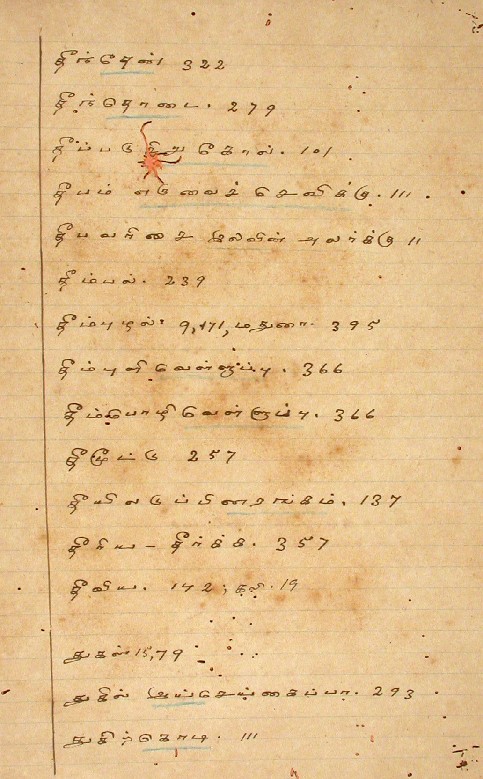 தீந்தேன் 322
தீந்தொடை. 279
தீப்படு சிறு கோல். 101
தீபம் எடுவைச் செவிக்கு. 111.
தீபவரிசை இலவின் அலர்க்கு 11
தீம்பல். 239
தீம்புழல் 9, 171, மதுரை. 395
தீம்புளி வெள்ளுப்பு. 366
தீம்பொழி வெள்ளுப்பு. 366
தீமூட்டு 257
தீயிலடுப்பினரங்கம். 137
தீரிய – தீர்க்க. 357
தீவிய. 142; கலி. 19
துகள் 15, 79
துகில் அய்செய்கைப்பா. 293
துகிர்கொடி. 111